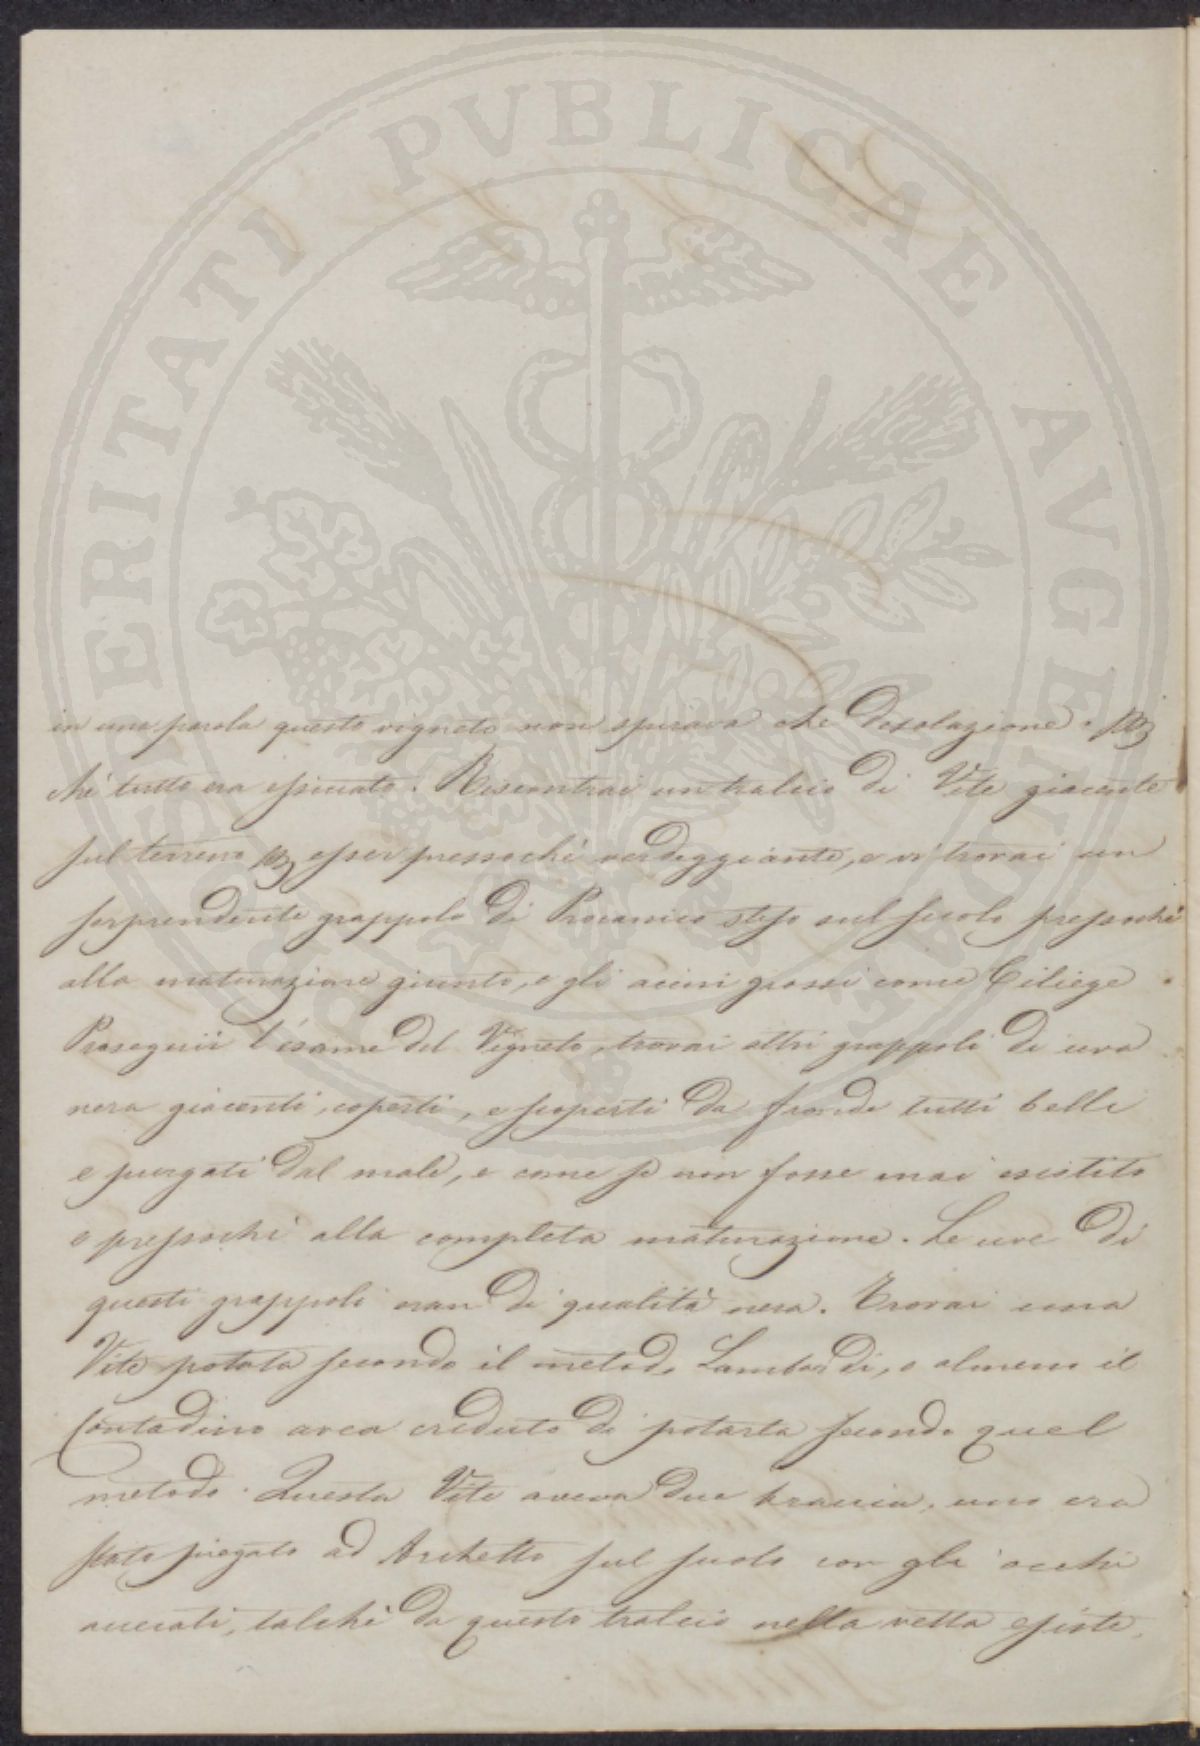 PROSPERITATI PVBLICAE AVGENDAE
in una parola questo vigneto non spirava che desolazione. per
chè tutto era essiccato. Riscontrai un tralcio di Vite giacente
sul terreno per esser pressochè verdeggiante, e vi trovai un
sorprendente grappolo di Procanico steso sul suolo pressochè
alla maturazione giunto, e gli acini grossi come Ciliege.
Proseguii l'esame del Vigneto, trovai altri grappoli di uva
nera giacenti, coperti, e scoperti da fronde tutti belli
e purgati dal male, e come se non fosse mai esistito
e pressochè alla completa maturazione. Le uve di
questi grappoli eran di qualità nera. Trovai una
Vite potata secondo il metodo Lambardi, o almeno il
Contadino avea creduto di potarla secondo quel
metodo. Questa Vite aveva due braccia, uno era
stato piegato ad Archetto sul suolo con gli occhi
acciecati, talchè da questo tralcio nella vetta esiste,